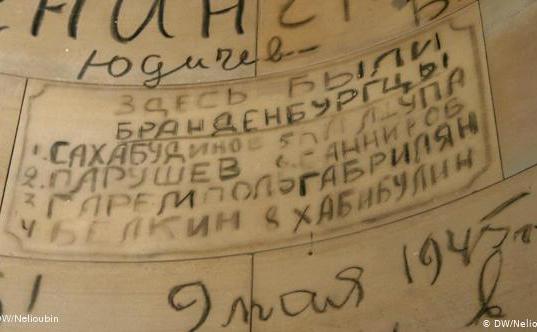 Юдичев
ЗДЕСЬ БЫЛИ
БРАНДЕНБУРГЦЫ
1. САХАБУДИНОВ 5
2. ПАРУШЕВ 6. САННИКОВ
3 ГАРЕМ 7 ГАБРИЛЯН
4 БЕЛКИН 8 ХАБИБУЛИН
9 мая 1945 г
DW/Nelioubin
© DW/Nelio